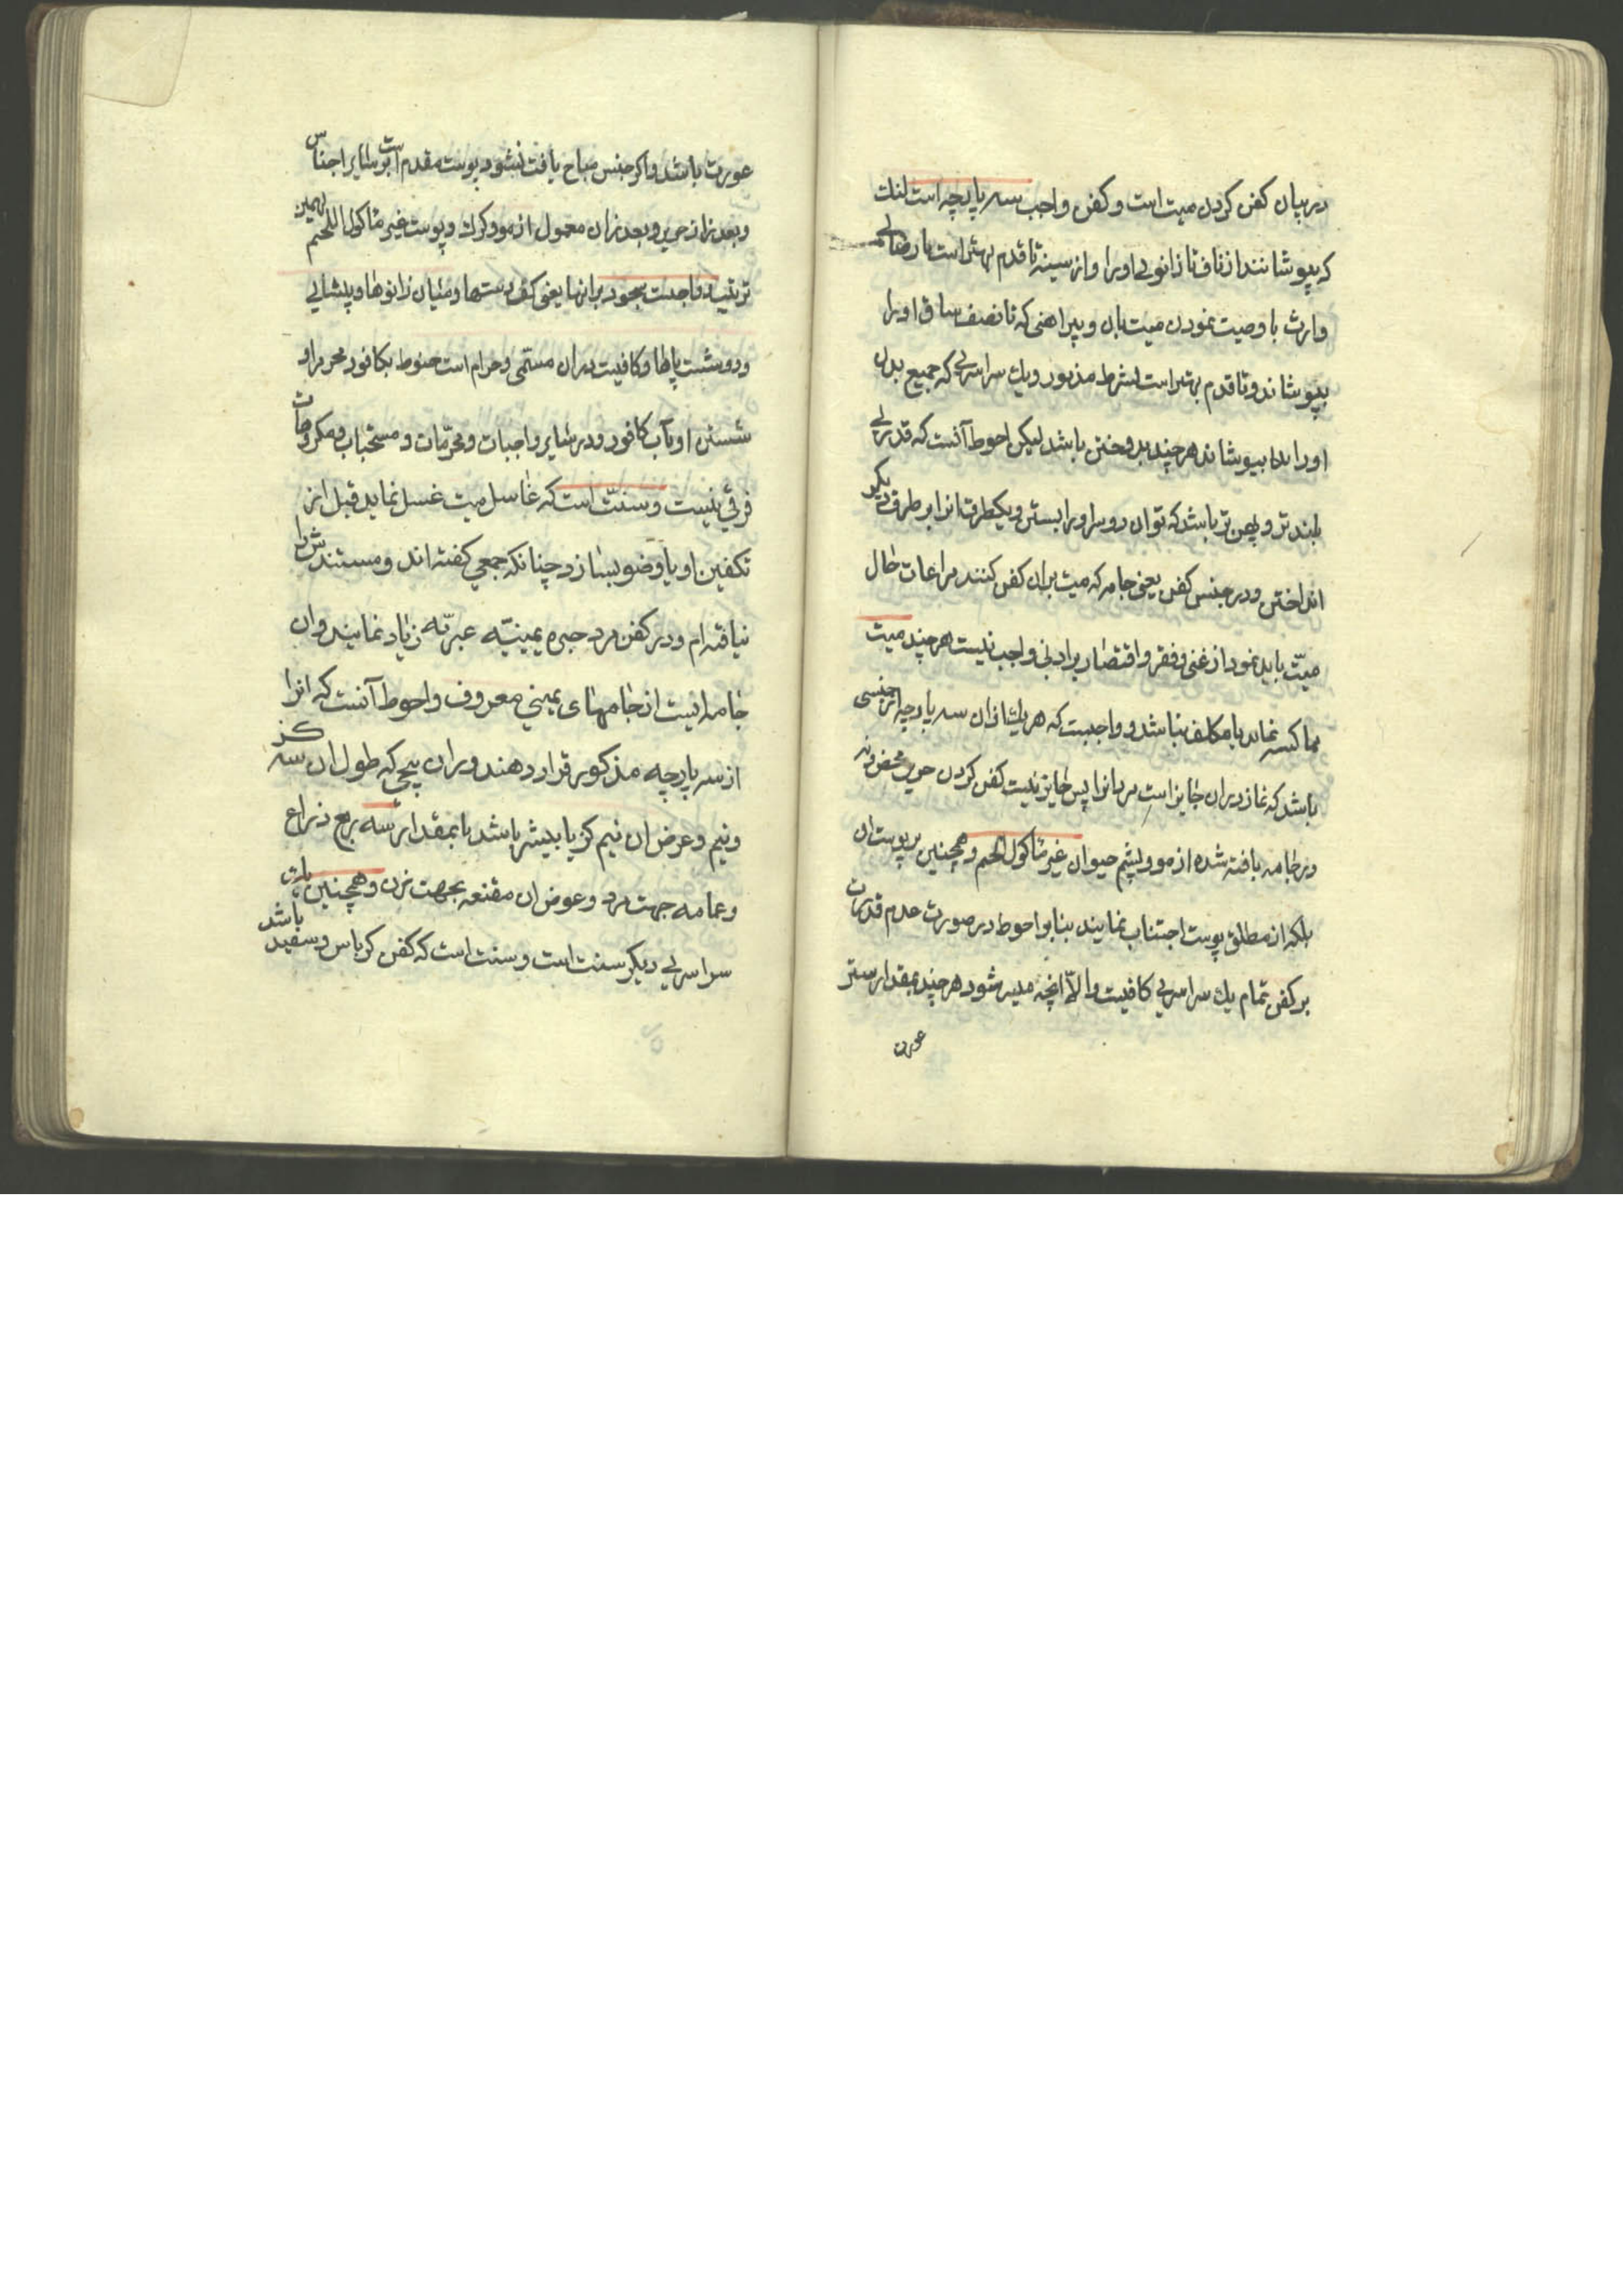 در بیان کفن کردن میت است و کفن واجب سه پارچه است لنك
که بپوشانند از ناف تا زانوی او را و از سینه تا قدم بهتر است با رضای
وارث یا وصیت نمودن میت بان و پیراهنی که تا نصف ساق او را
بپوشاند و تا قدم بهتر است بشرط مذبور و یك سراسری که جمیع بدن
او را بپوشاند هر چند بدوختن باشد لیکن احوط آنست که قدری
بلندتر و پهن تر باشد که توان دو سر او را بستن و یکطرف انرا بر طرف دیکر
انداختن و در جنس کفن یعنی جامه که میت را بران کفن کنند مراعات حال
میّت باید نمود از غنی و فقر و اقتصار بر ادنی واجب نیست هر چند میت
مماکسه نماید یا مکلف نباشد و واجبست که هر یك از ان سه پارچه از جنسی
باشد که نماز در ان جایز است مردانرا پس جایز نیست کفن کردن حریر محض و نه
در جامه بافته شده از مو و پشم حیوان غیر ماکول اللحم و همچنین در پوست ان
بلکه از مطلق پوست اجتناب نمایند بنابر احوط در صورت عدم قدرت
بر کفن تمام یك سراسری کافیست و الّا انچه میسر شود هر چند بمقدار ستر
عورت
عورت باشد و اکر جنس مباح یافت نشود پوست مقدم است بر سایر اجناس
و بعد از ان حریر و بعد از ان معمول از مو و کرك و پوست غیر ماکول اللحم بهمین
ترتیب و واجبست سجود بر انها یعنی کف دستها و میان زانوها و پیشانی
و دو شست پاها و کافیست در ان مسمّی و حرام است حنوط بکافور محرم را و
شستن او بآب کافور و در سایر واجبات و محرّمات و مستحبات و مکروهات
فرقی نیست و سنّت است که غاسل میت غسل نماید قبل از
تکفین او یا وضو بسازد چنانکه جمعی کفته اند و مستندش را
نیافته ام و در کفن مرد حبره یمینیّه عبریّه زیاد نمایند و ان
جامه ایست از جامهای یمینی معروف و احوط آنست که انرا
از سه پارچه مذکور قرار دهند و ران پیچی که طول ان سه کز
و نیم و عرض ان نیم کز یا بیشتر باشد یا بمقدار سه ربع ذراع
و عمامه جهت مرد و عوض ان مقنعه بجهت زن و همچنین
سراسری دیکر سنت است و سنت است که کفن کرباس و سفید باشد